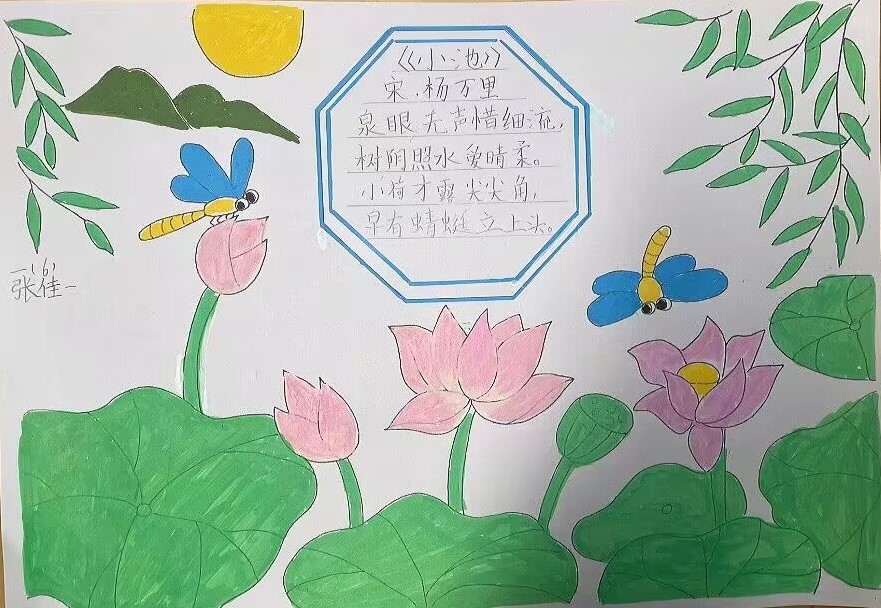 《小池》
宋.杨万里
泉眼无声惜细流，
树阴照水爱晴柔。
小荷才露尖尖角，
早有蜻蜓立上头。
一(6)
张佳一